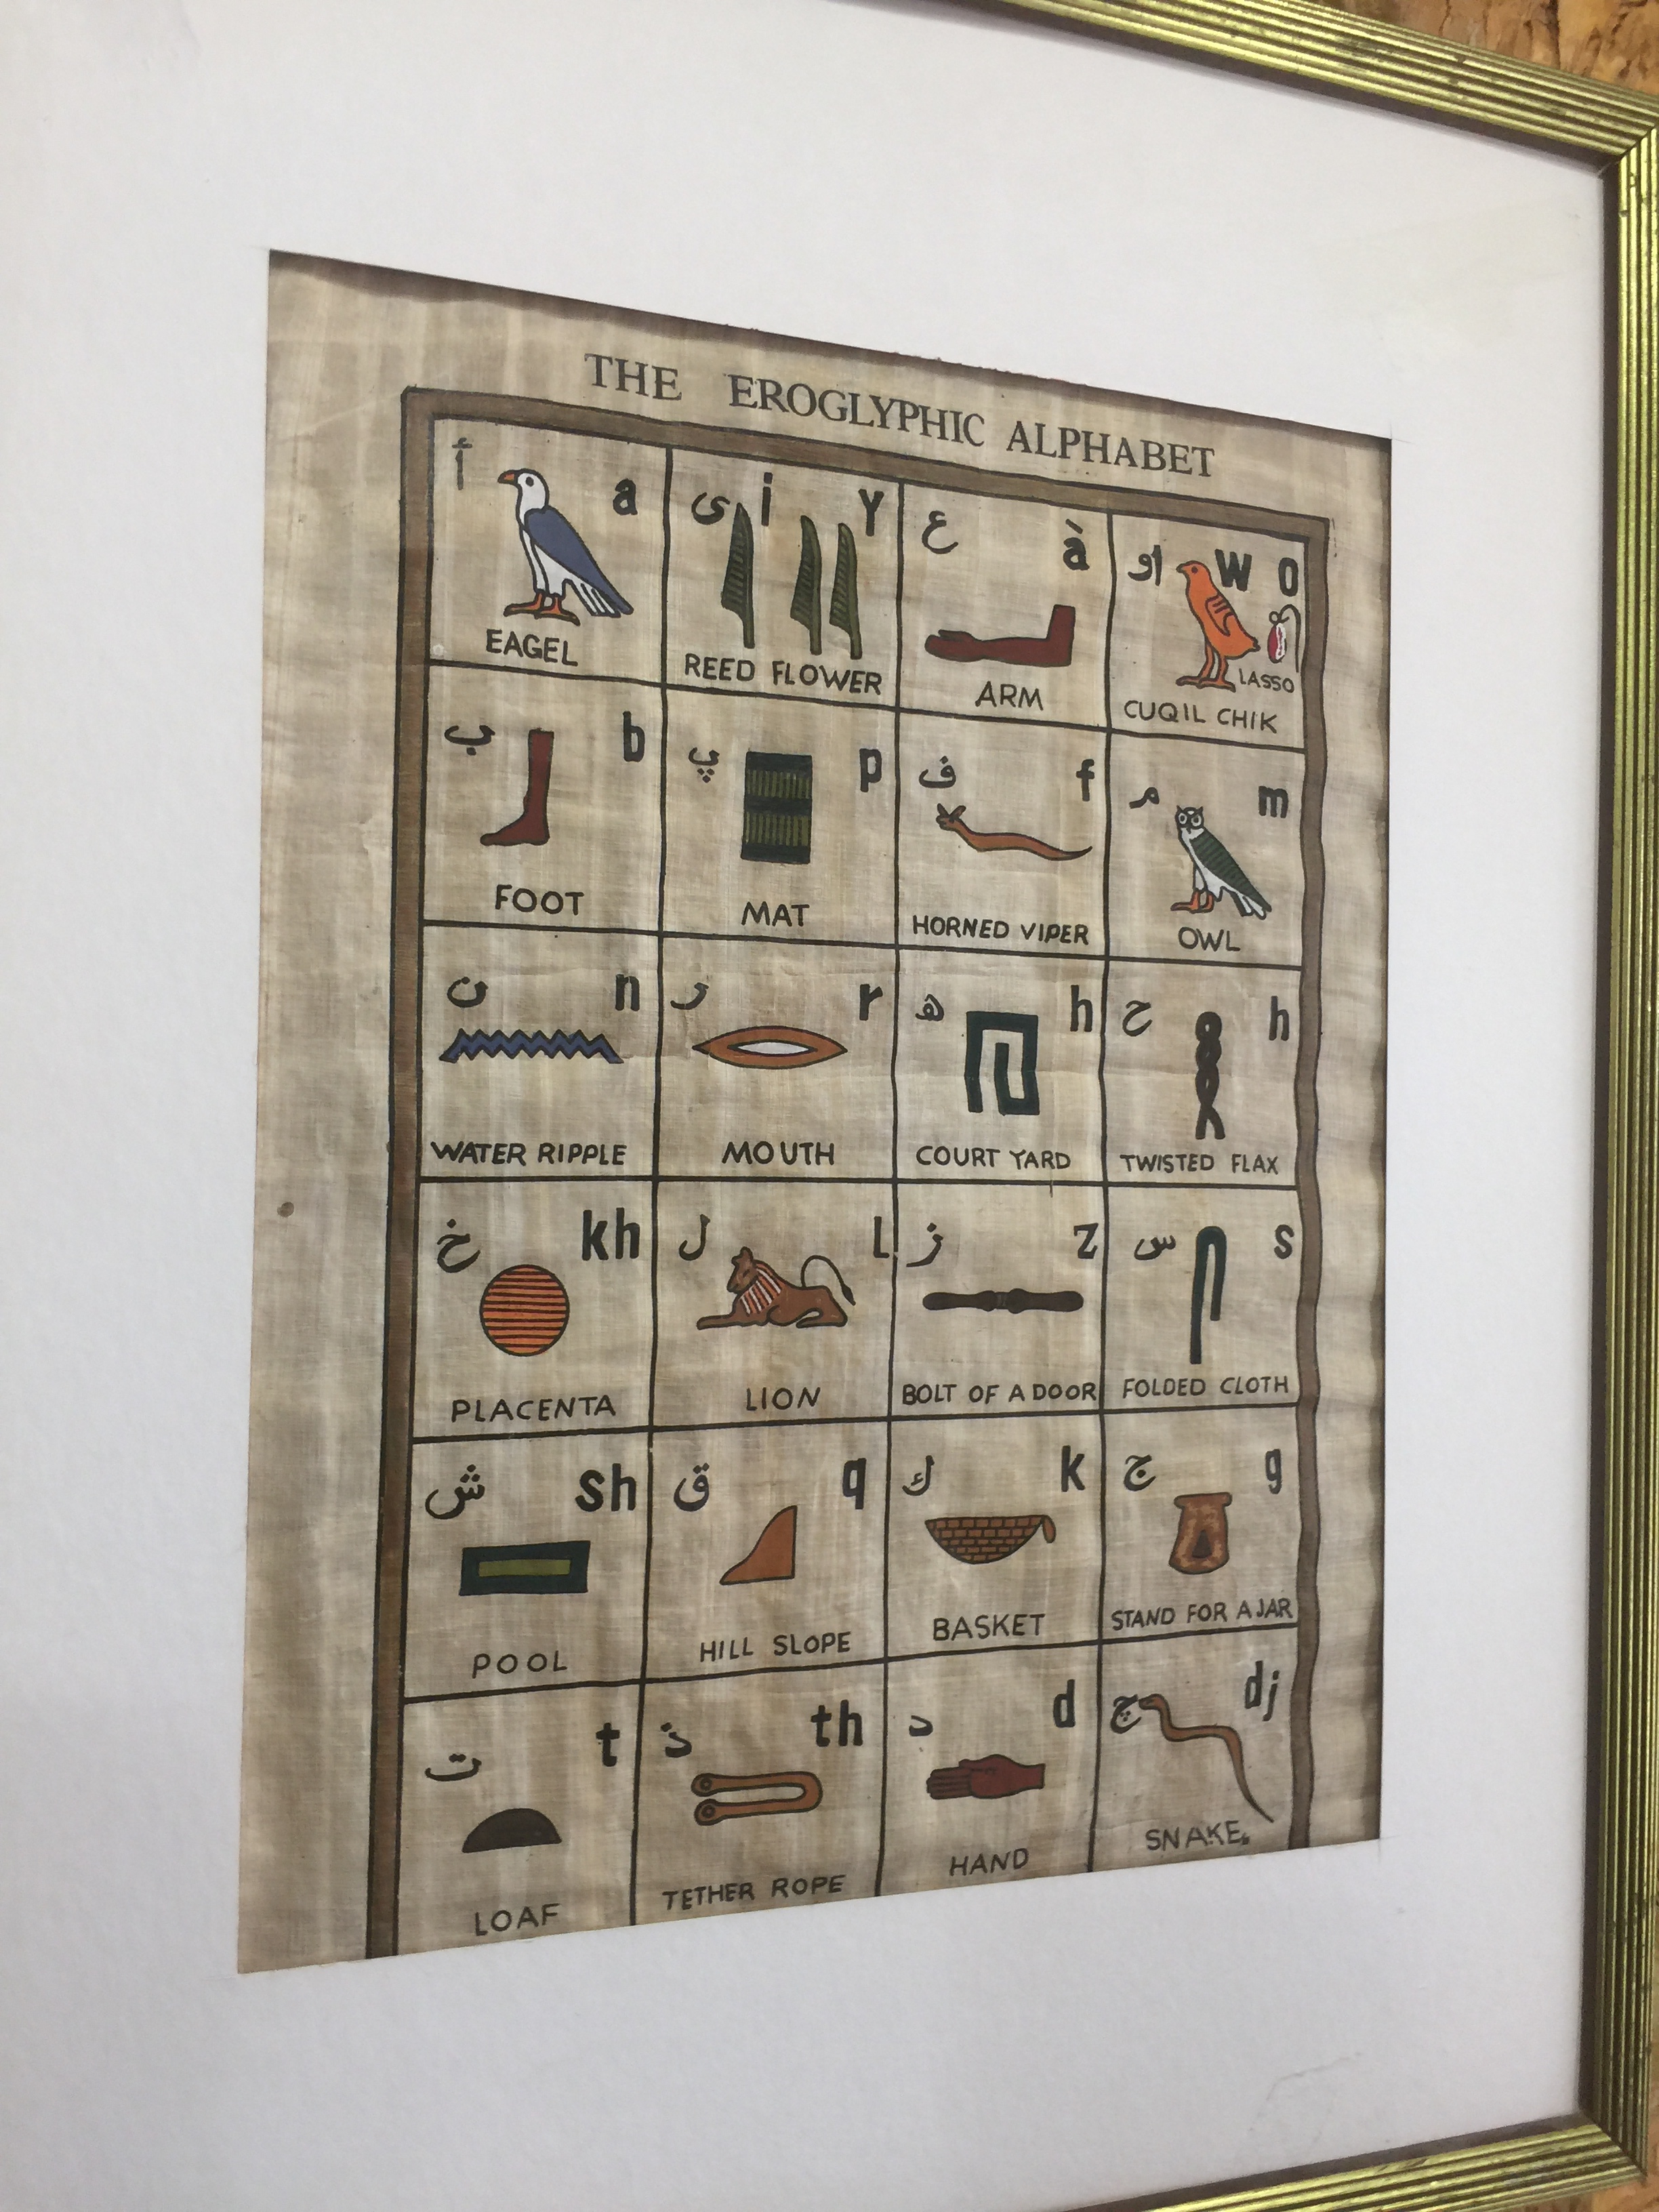 THE EROGLYPHIC ALPHABET
أ a
EAGEL
ى i Y
REED FLOWER
ع à
ARM
او w o
LASSO
CUQIL CHIK
ب b
FOOT
پ p
MAT
ف f
HORNED VIPER
م m
OWL
ن n
WATER RIPPLE
ر r
MOUTH
ه h
COURT YARD
ح h
TWISTED FLAX
خ kh
PLACENTA
ل L
LION
ز z
BOLT OF A DOOR
س s
FOLDED CLOTH
ش sh
POOL
ق q
HILL SLOPE
ك k
BASKET
ج g
STAND FOR A JAR
ت t
LOAF
ذ th
TETHER ROPE
د d
HAND
چ dj
SNAKE